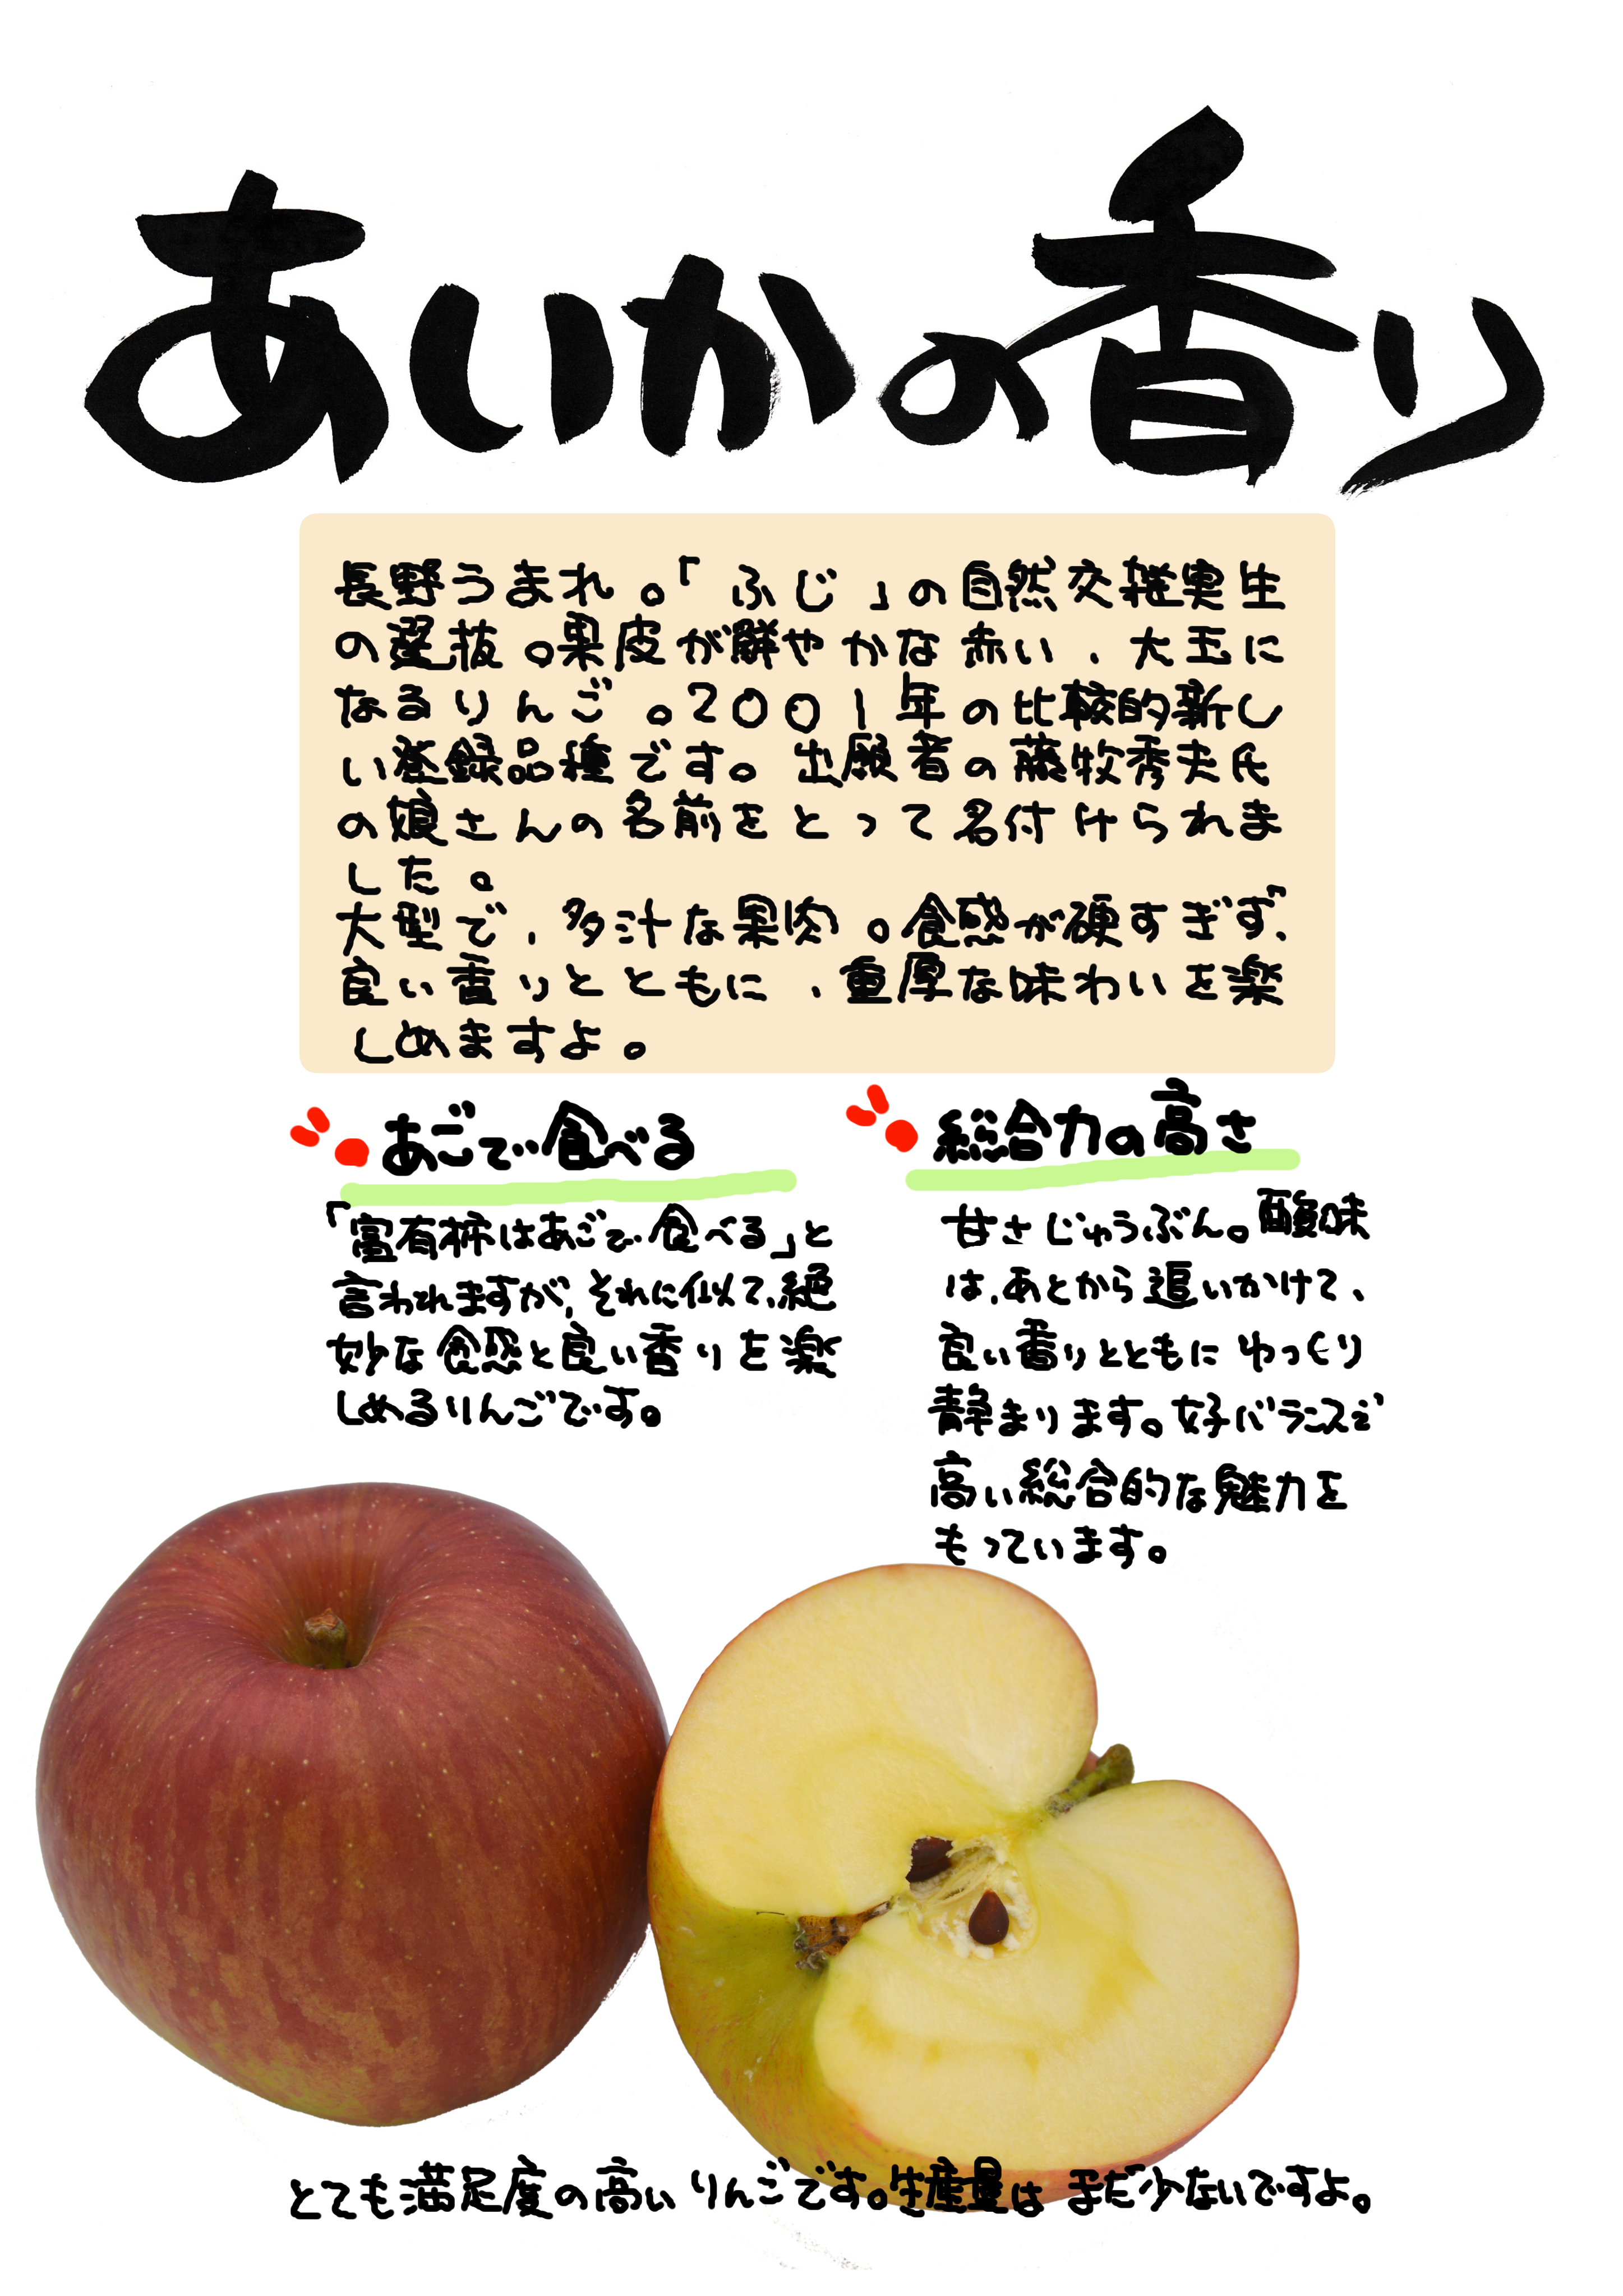 あいかの香り
長野うまれ。「ふじ」の自然交雑実生
の選抜。果皮が鮮やかな赤い、大玉に
なるりんご。2001年の比較的新し
い登録品種です。出願者の藤牧秀夫氏
の娘さんの名前をとって名付けられま
した。
大型で、多汁な果肉。食感が硬すぎず、
良い香りとともに、重厚な味わいを楽
しめますよ。
あごで食べる
「富有柿はあごで食べる」と
言われますが、それに似て、絶
妙な食感と良い香りを楽
しめるりんごです。
総合力の高さ
甘さじゅうぶん。酸味
は、あとから追いかけて、
良い香りとともにゆっくり
静まります。好バランスで
高い総合的な魅力を
もっています。
とても満足度の高いりんごです。生産量はまだ少ないですよ。